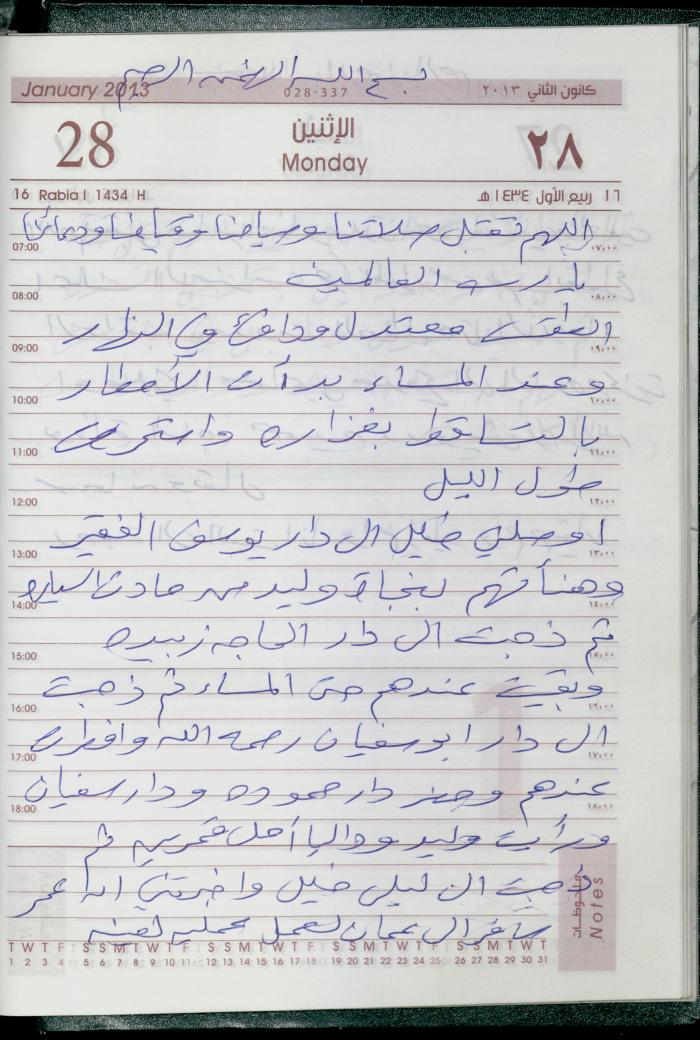 بسم الله الرحمن الرحيم
January 2013 028-337 كانون الثاني ٢٠١٣
28 الإثنين ٢٨
Monday
16 Rabia I 1434 H ١٦ ربيع الأول ١٤٣٤ هـ
اللهم تقبل صلاتنا وصيامنا وقيامنا ودعائنا
07:00 ٠٧:٠٠
يا رب العالمين
08:00 ٠٨:٠٠
الطقس معتدل ودافئ في النهار
09:00 ٠٩:٠٠
وعند المساء بدأت الأمطار
10:00 ١٠:٠٠
بالتساقط بغزاره واستمرت
11:00 ١١:٠٠
طول الليل
12:00 ١٢:٠٠
اوصلني خليل الى دار يوسف الفقير
13:00 ١٣:٠٠
وهنأتهم بنجاة وليد من حادث السياره
14:00 ١٤:٠٠
ثم ذهبت الى دار الحاجه زبيده
15:00 ١٥:٠٠
وبقيت عندهم حتى المساء ثم ذهبت
16:00 ١٦:٠٠
الى دار ابو سفيان رحمه الله وافطرت
17:00 ١٧:٠٠
عندهم وحضر دار حموده ودار سفيان
18:00 ١٨:٠٠
ورأيت وليد وداليا ثم
ذهبت الى ليلى خليل واخبرتني ان عمر
سافر الى عمان لعمل عمليه لعينه
ملاحظات Notes
T W T F S S M T W T F S S M T W T F S S M T W T F S S M T W T
1 2 3 4 5 6 7 8 9 10 11 12 13 14 15 16 17 18 19 20 21 22 23 24 25 26 27 28 29 30 31